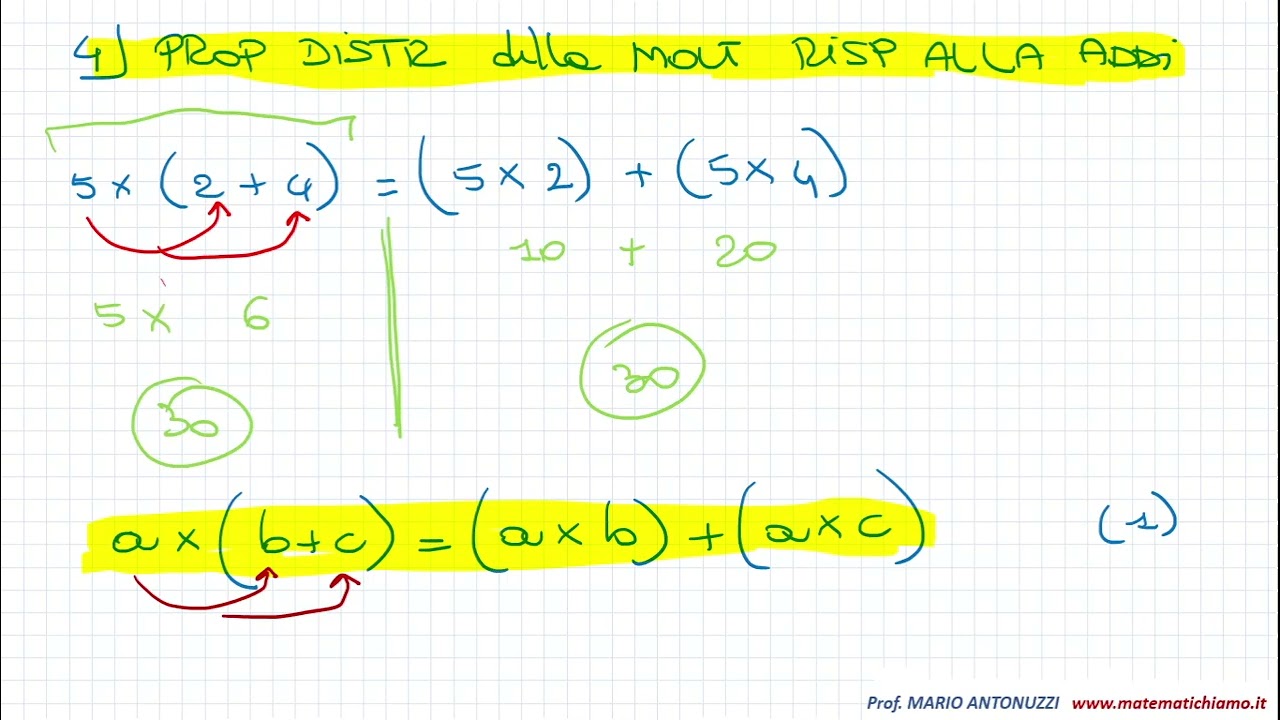 4) PROP DISTR della MOLT RISP ALLA ADDI
5 x (2 + 4) = (5 x 2) + (5 x 4)
10 + 20
5 x 6
30
30
a x (b+c) = (a x b) + (a x c) (1)
Prof. MARIO ANTONUZZI www.matematichiamo.it